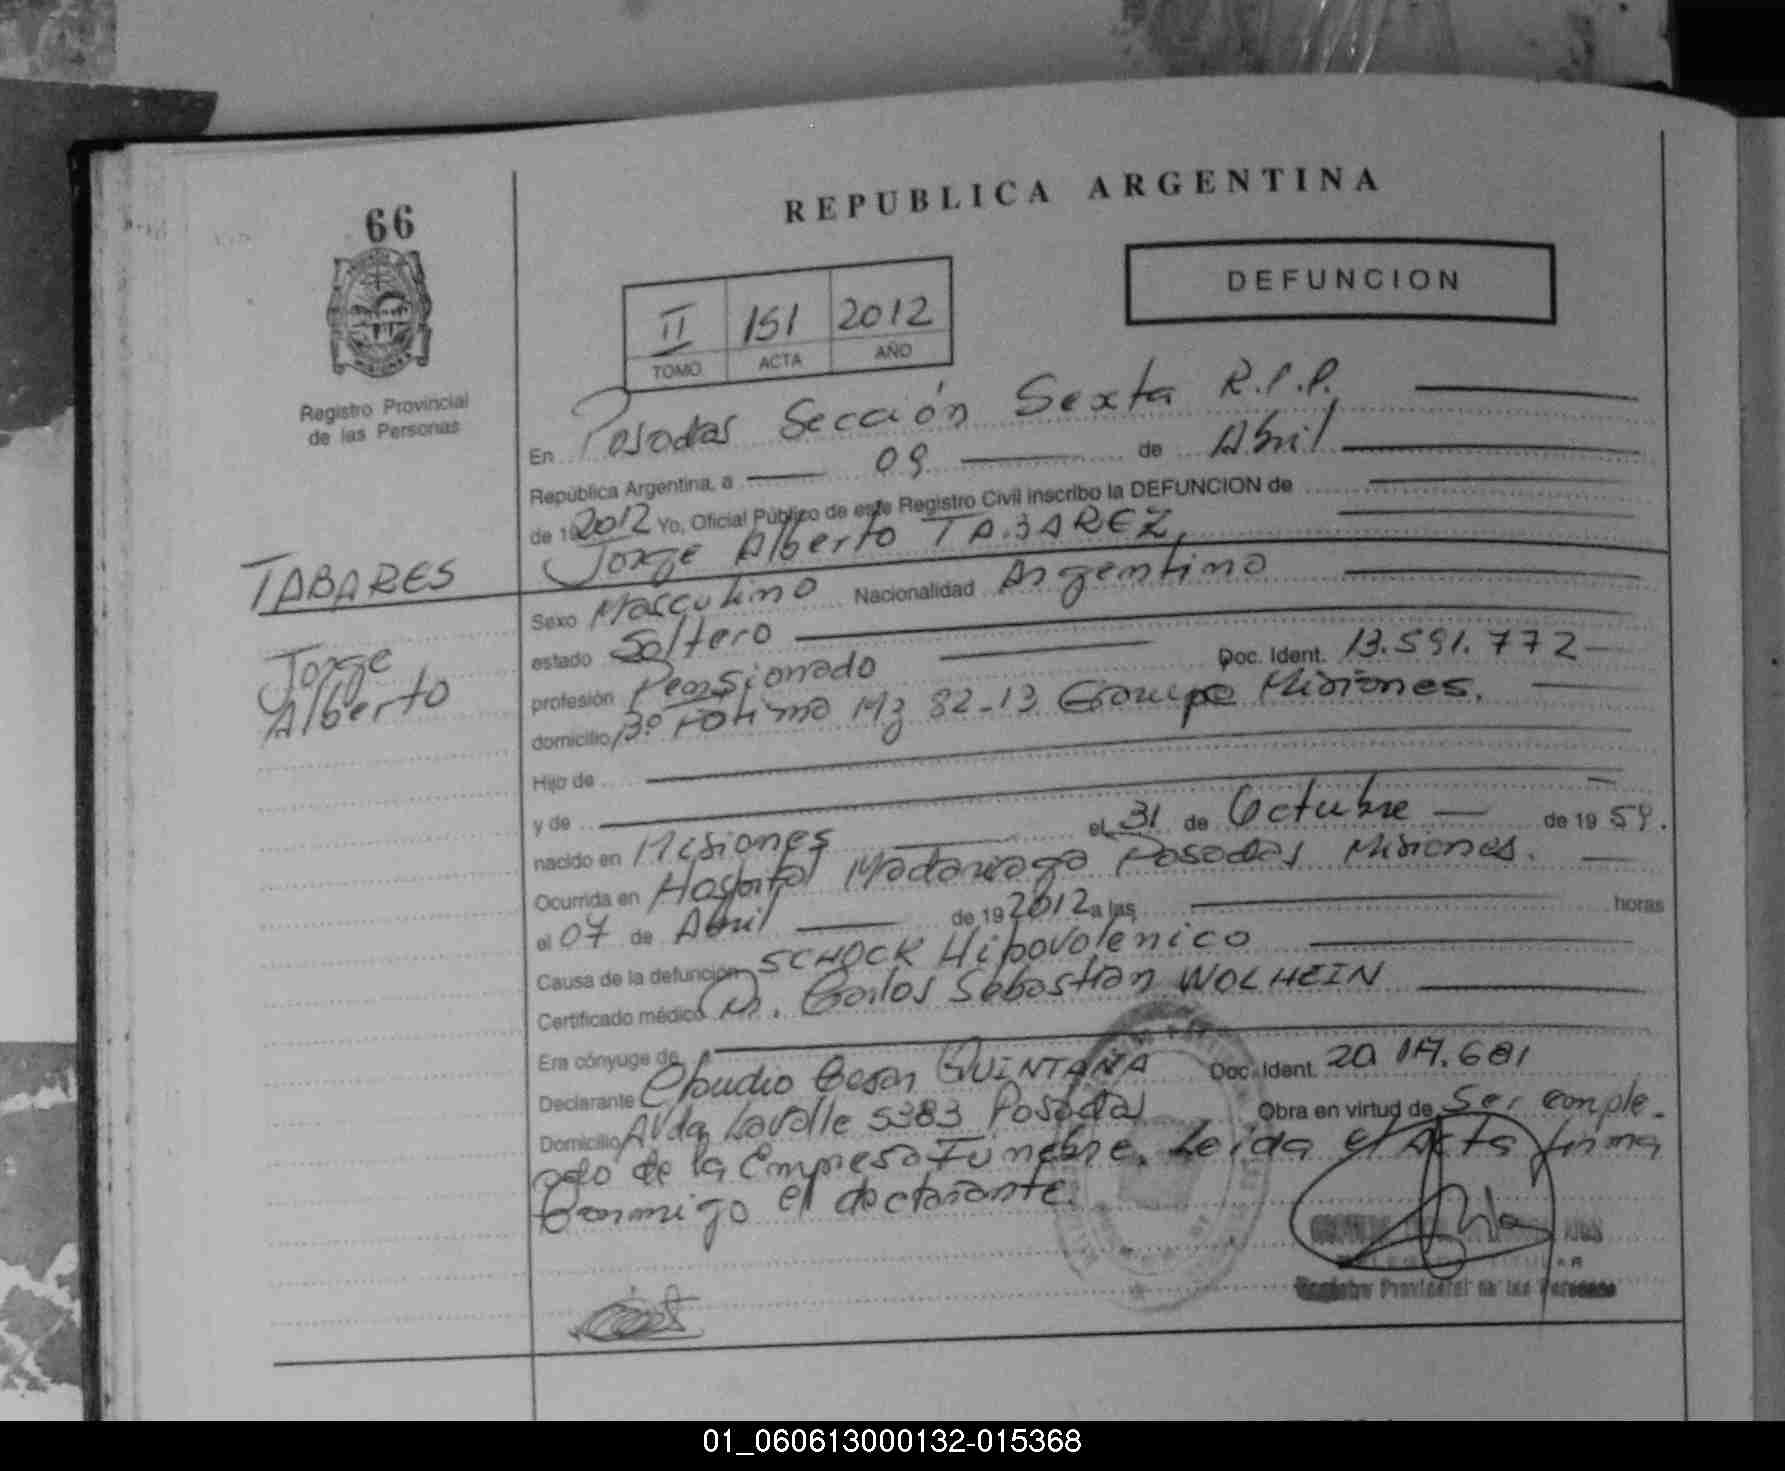 66
REPUBLICA ARGENTINA
DEFUNCION
II 151 2012
TOMO ACTA AÑO
Registro Provincial
de las Personas
En Posadas Sección Sexta R.P.P.
República Argentina, a 09 de Abril
de 192012 Yo, Oficial Público de este Registro Civil inscribo la DEFUNCION de
Jorge Alberto TABAREZ
TABARES
Jorge
Alberto
Sexo Masculino Nacionalidad Argentino
estado Soltero
profesión Pensionado Doc. Ident. 13.591.772
domicilio Bº Mz 82-13 Garupa Misiones.
Hijo de
y de
nacido en Misiones el 31 de Octubre de 1959.
Ocurrida en Hospital Madariaga Posadas Misiones.
el 07 de Abril de 192012 a las horas
Causa de la defunción SCHOCK Hipovolenico
Certificado médico Dr. Carlos Sebastian WOLHEIN
Era cónyuge de
Declarante Claudio Cesar QUINTANA Doc. Ident. 20.117.681
Domicilio Avda Lavalle 5383 Posadas Obra en virtud de Ser emple-
ado de la Empresa Fúnebre. Leida el Acta firma
Conmigo el declarante.
Registro Provincial de las Personas
01_060613000132-015368